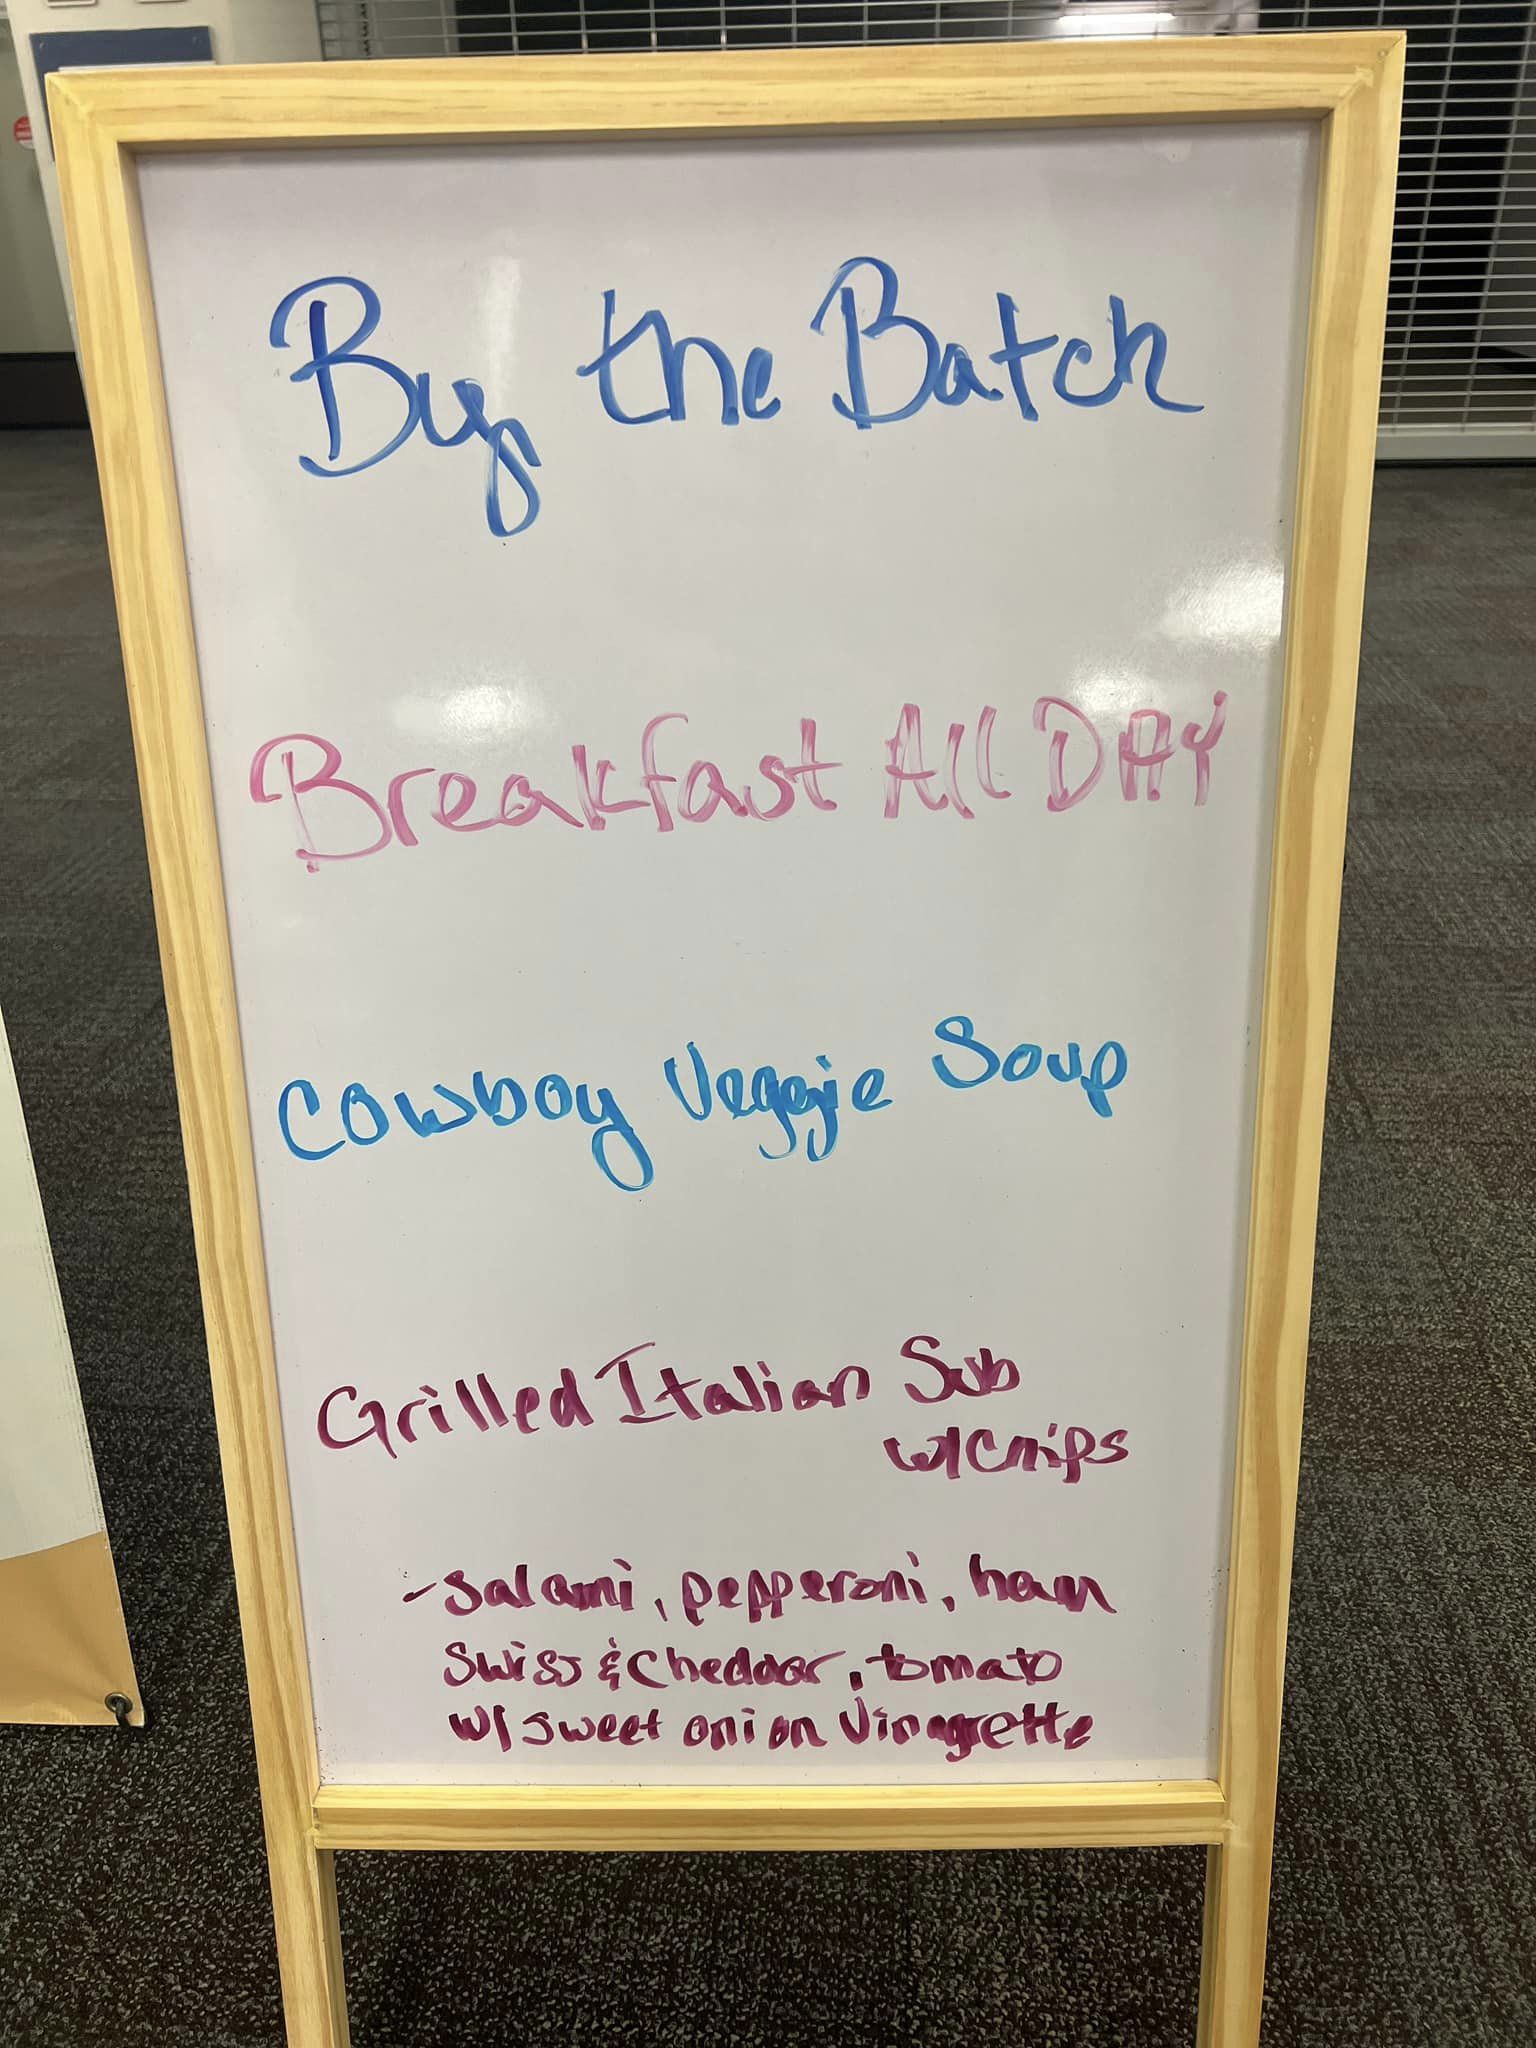 By the Batch
Breakfast All DAY
Cowboy Veggie Soup
Grilled Italian Sub
w/Chips
- Salami, pepperoni, ham
Swiss & Cheddar, tomato
w/ sweet onion Vinagrette